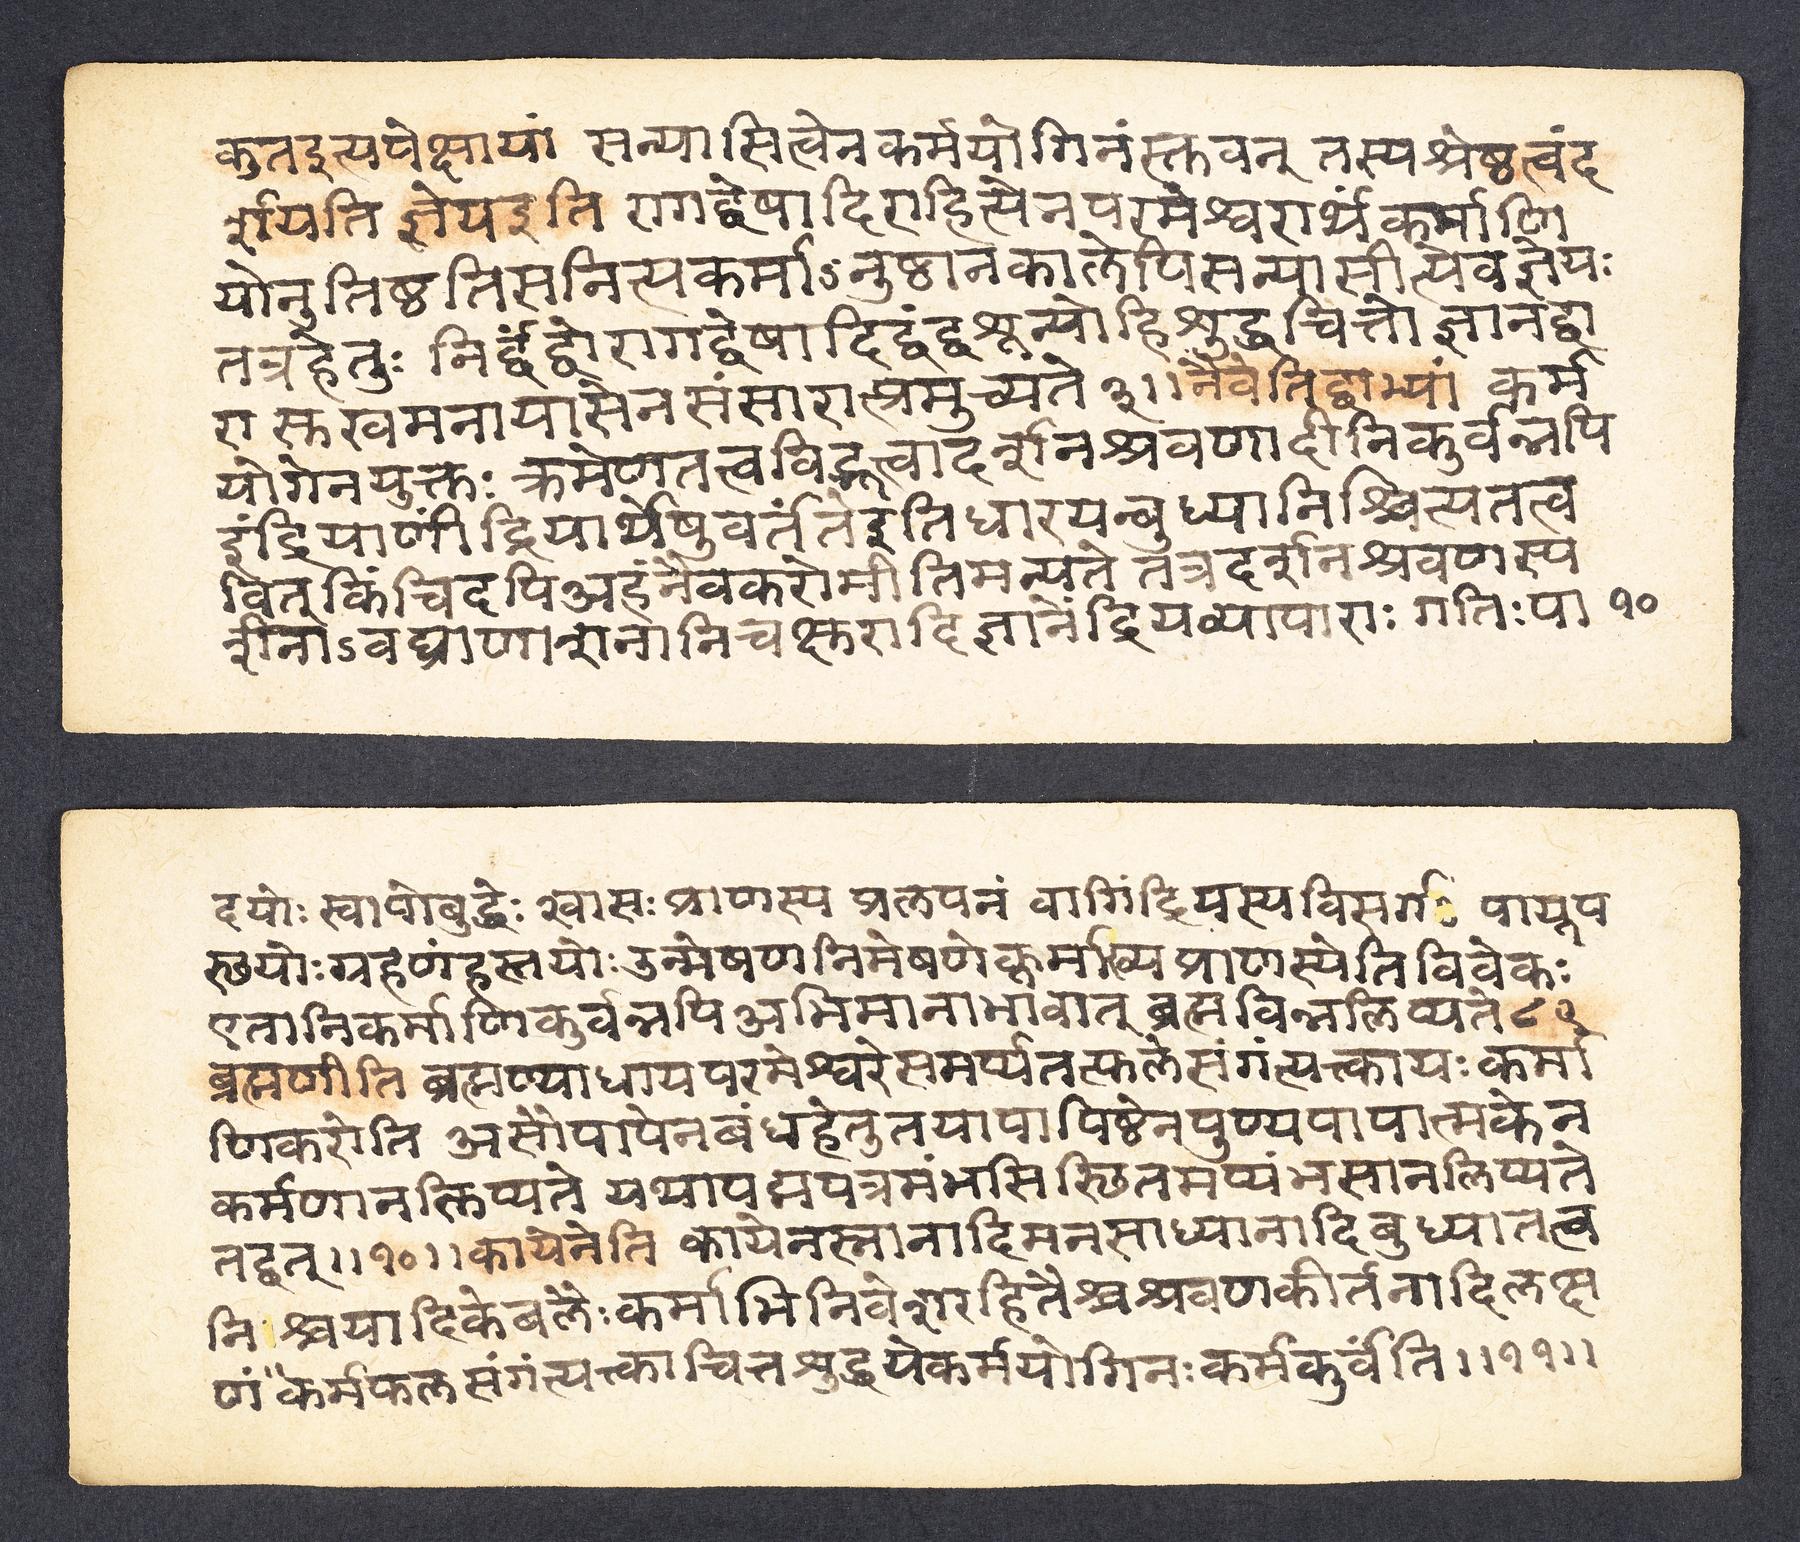 कुतइत्यपेक्षायां सन्यासित्वेनकर्मयोगिनंस्तुवन् तस्यश्रेष्ठत्वंद
र्शयति ज्ञेयइति रागद्वेषादिराहित्येनपरमेश्वरार्थंकर्माणि
योनुतिष्ठतिसनित्यकर्माऽनुष्ठानकालेपिसन्यासीत्येवज्ञेयः
तत्रहेतुः निर्द्वंद्वोरागद्वेषादिद्वंद्वशून्योहिशुद्धचित्तोज्ञानद्वा
रा सुखमनायासेनसंसारात्प्रमुच्यते ३।।नैवेतिद्वाभ्यां कर्म
योगेनयुक्तः क्रमेणतत्त्वविद्भूत्वादर्शनश्रवणादीनिकुर्वन्नपि
इंद्रियाणींद्रियार्थेषुवर्तंतेइतिधारयन्बुध्यानिश्चित्यतत्त्व
वित् किंचिदपिअहंनैवकरोमीतिमन्यते तत्रदर्शनश्रवणस्प
र्शनाऽवघ्राणाशनानिचक्षुरादिज्ञानेंद्रियव्यापाराः गतिःपा १०
दयोः स्वापोबुद्धेः श्वासः प्राणस्य प्रलपनं वागिंद्रियस्यविसर्गः पायूप
स्थयोः ग्रहणंहस्तयोः उन्मेषणनिमेषणेकूर्माख्यप्राणस्येतिविवेकः
एतानिकर्माणिकुर्वन्नपिअभिमानाभावात् ब्रह्मविन्नलिप्यते८९
ब्रह्मणीति ब्रह्मण्याधायपरमेश्वरेसमर्प्यतत्फलेसंगंत्यक्त्कायः कर्मा
णिकरोति असौपापेनबंधहेतुतयापापिष्ठेनपुण्यपापात्मकेन
कर्मणानलिप्यते यथापद्मपत्रमंभसिस्थितमप्यंभसानलिप्यते
तद्वत्।।१०।।कायेनेति कायेनस्नानादिमनसाध्यानादिबुध्यातत्व
निश्चयादिकेवलैःकर्माभिनिवेशरहितैश्चश्रवणकीर्तनादिलक्ष
णंकर्मफलसंगंत्यक्त्काचित्तशुद्धयेकर्मयोगिनःकर्मकुर्वंति।।११।।